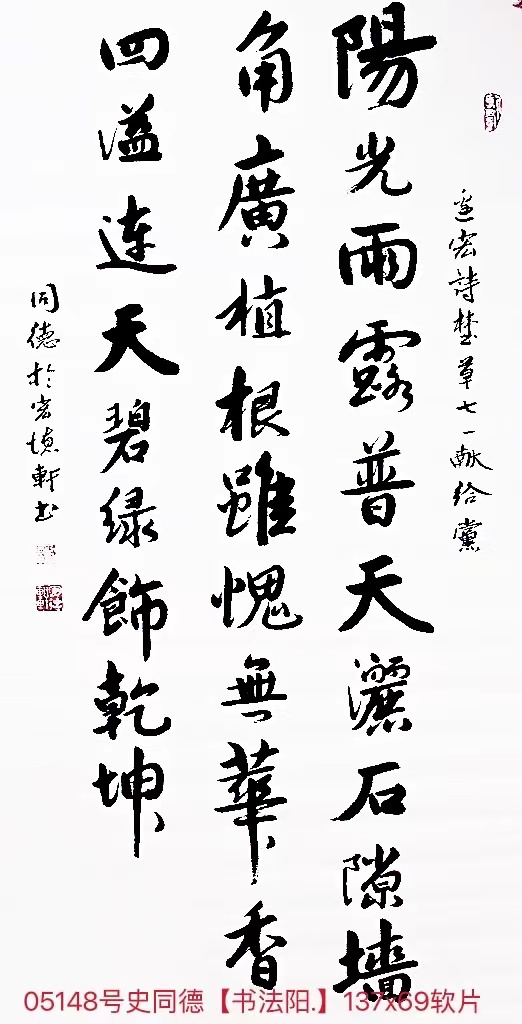 宏詩草七一献给黨
陽光雨露普天灑石隙墙
角廣植根雖愧無華香
四溢连天碧绿飾乾坤
同德於宏軒书
05148号史同德【书法阳.】137x69软片